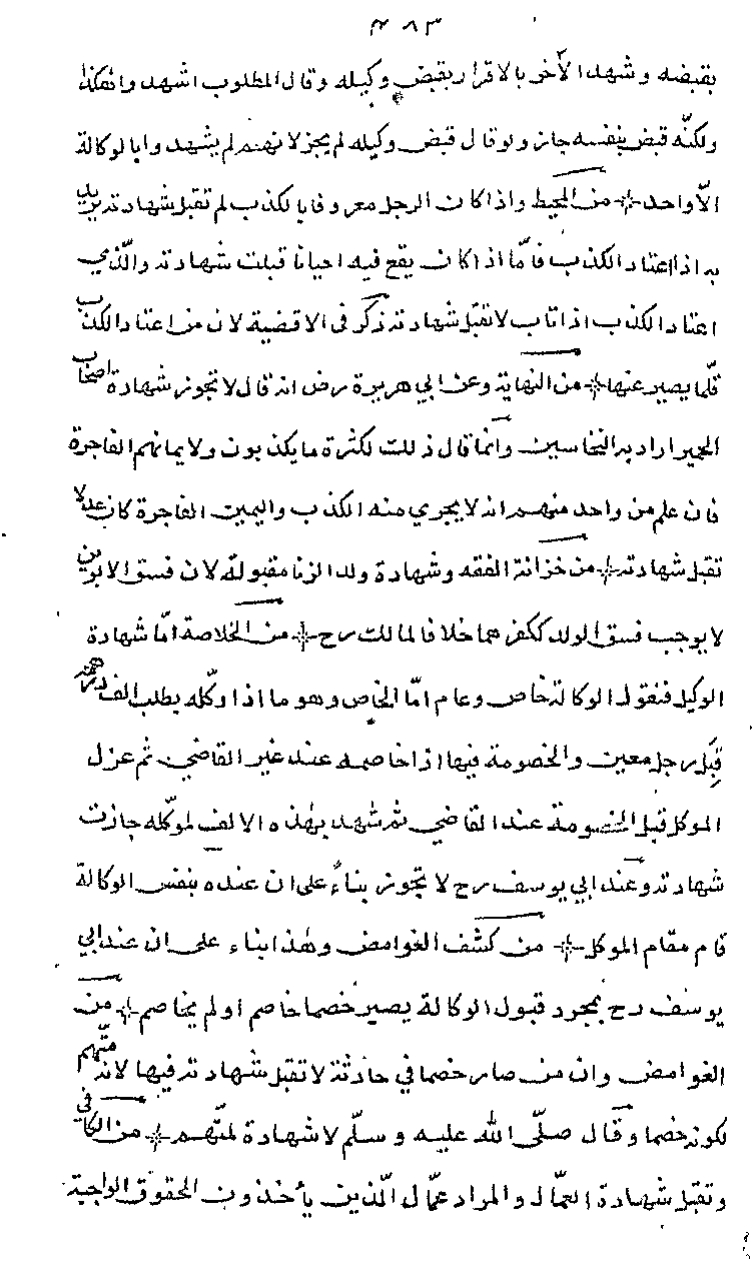 ٣٨٣
بقبضه وشهد الآخر بالاقرار بقبض وكيله وقال المطلوب اشهد وا هكذا
ولكنّه قبض بنفسه جاز ولو قال قبض وكيله لم يجز لانهم لم يشهد وابالوكالة
الّا واحد من المحيط واذا كان الرجل معروفا بالكذب لم تقبل شهادته يريد
به اذا اعتاد الكذب فامّا اذا كان يقع فيه احيانا قبلت شهادته والّذي
اعتاد الكذب اذا تاب لا تقبل شهادته ذكر فى الاقضية لان من اعتاد الكذب
قلّما يصبر عنها من النهاية وعن ابي هريرة رض انه قال لا تجوز شهادة اصحاب
الحمير اراد به النخاسين وانّما قال ذلك لكثرة ما يكذبون ولايمانهم الفاجرة
فان علم من واحد منهم انه لا يجري منه الكذب واليمين الفاجرة كان عدلا
تقبل شهادته من خزانة الفقه وشهادة ولد الزنا مقبولة لان فسق الابوين
لا يوجب فسق الولد ككفرهما خلافا لمالك رح من الخلاصة امّا شهادة
الوكيل فنقول الوكالة خاص وعام امّا الخاص وهو ما اذا وكّله بطلب الف درهم
قِبَل رجل معين والخصومة فيها اذا خاصمه عند غير القاضي ثم عزل
الموكل قبل الخصومة عند القاضي ثم شهد بهذه الالف لموكّله جازت
شهادته وعند ابي يوسف رح لا تجوز بناءً على ان عنده بنفس الوكالة
قام مقام الموكل من كشف الغوامض وهذا بناء على ان عند ابي
يوسف رح بمجرد قبول الوكالة يصير خصما خاصم او لم يخاصم من
الغوامض وان من صار خصما في حادثة لا تقبل شهادته فيها لانه متّهم
لكونه خصما وقال صلّى الله عليه وسلّم لا شهادة لمتّهم من الكافي
وتقبل شهادة العمّال والمراد عمّال الّذين يأخذون الحقوق الواجبة